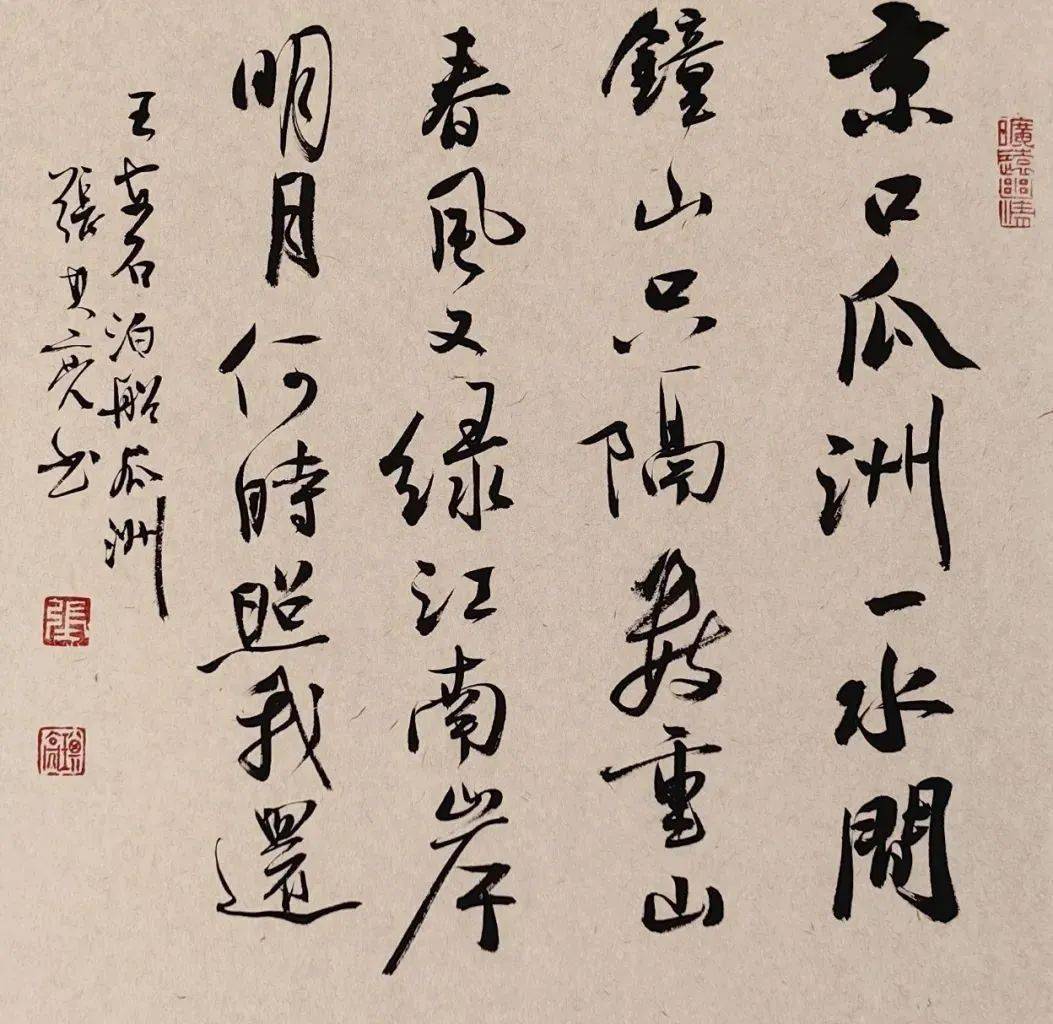 京口瓜洲一水間
鐘山只隔數重山
春風又緑江南岸
明月何時照我還
王安石泊船瓜洲
張其亮书
張